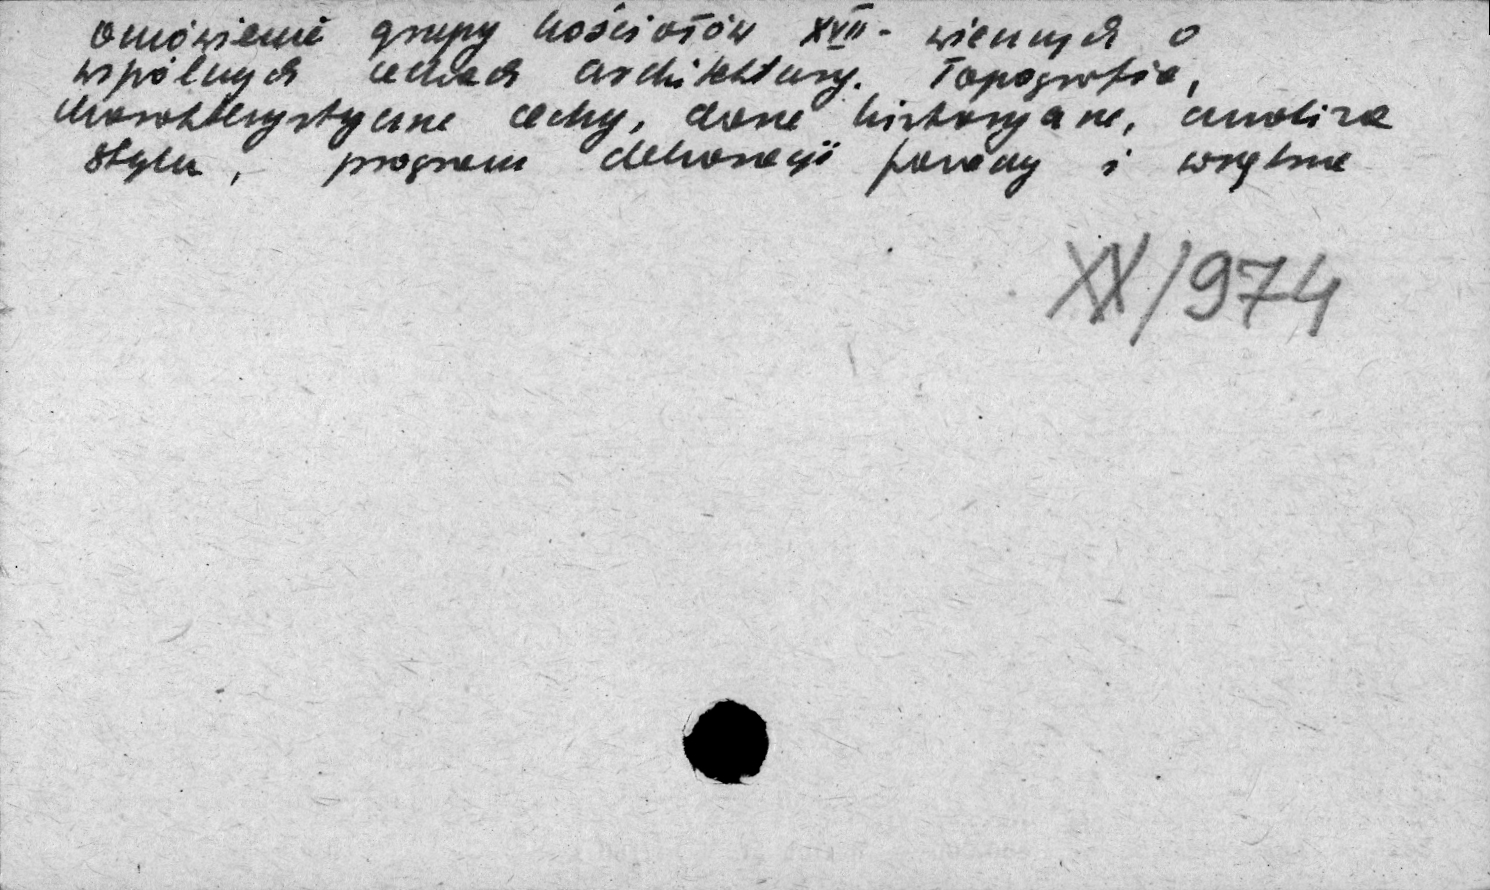 omówienie grupy kościołów XVII-wiecznych o
wspólnych cechach architektury. Topografia,
charakterystyczne cechy, dane historyczne, analiza
stylu, program dekoracji fasady i wnętrza
XX/974